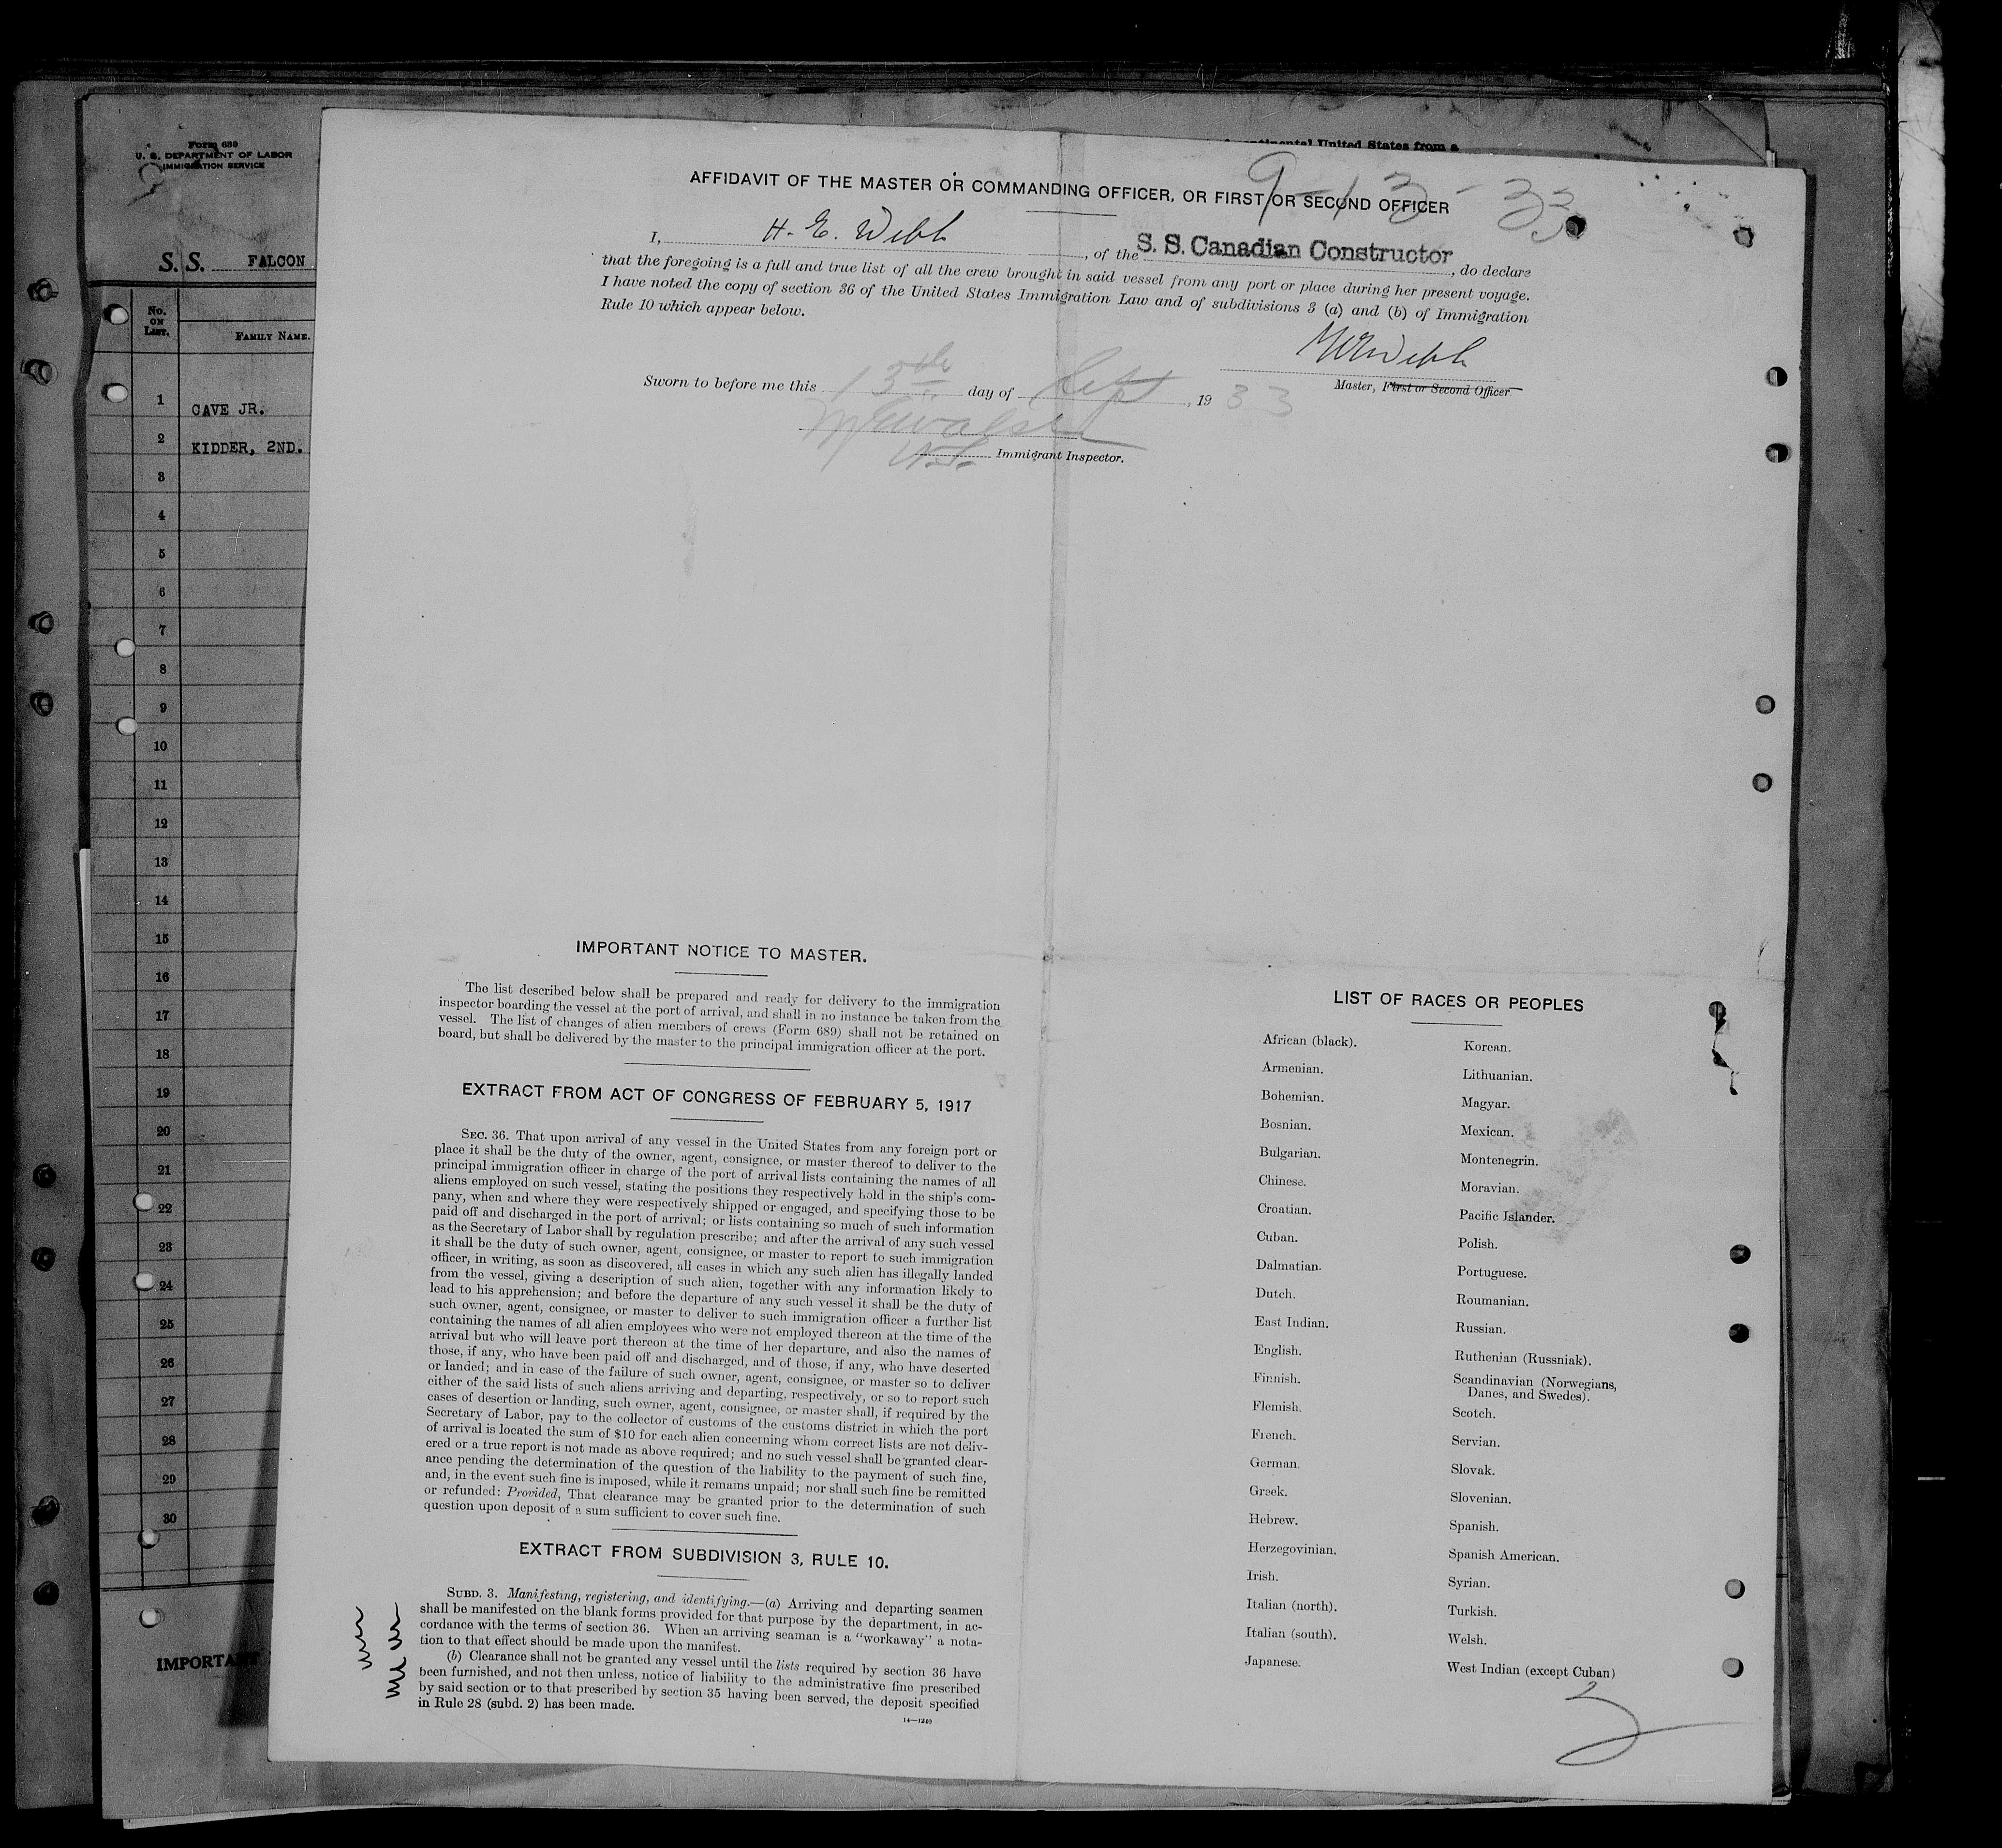 Form 680
U. S. DEPARTMENT OF LABOR
IMMIGRATION SERVICE
S. S. FALCON
No.
ON
LIST.
FAMILY NAME.
1 CAVE JR.
2 KIDDER, 2ND.
3
4
5
6
7
8
9
10
11
12
13
14
15
16
17
18
19
20
21
22
23
24
25
26
27
28
29
30
IMPORTA
United States from a
9-13-33
AFFIDAVIT OF THE MASTER OR COMMANDING OFFICER, OR FIRST OR SECOND OFFICER
I, H. E. Webb, of the S. S. Canadian Constructor, do declare
that the foregoing is a full and true list of all the crew brought in said vessel from any port or place during her present voyage.
I have noted the copy of section 36 of the United States Immigration Law and of subdivisions 3 (a) and (b) of Immigration
Rule 10 which appear below.
Webb
Master, First or Second Officer
Sworn to before me this 13th day of Sept, 1933
Immigrant Inspector.
IMPORTANT NOTICE TO MASTER.
The list described below shall be prepared and ready for delivery to the immigration
inspector boarding the vessel at the port of arrival, and shall in no instance be taken from the
vessel. The list of changes of alien members of crews (Form 689) shall not be retained on
board, but shall be delivered by the master to the principal immigration officer at the port.
EXTRACT FROM ACT OF CONGRESS OF FEBRUARY 5, 1917
SEC. 36. That upon arrival of any vessel in the United States from any foreign port or
place it shall be the duty of the owner, agent, consignee, or master thereof to deliver to the
principal immigration officer in charge of the port of arrival lists containing the names of all
aliens employed on such vessel, stating the positions they respectively hold in the ship's com-
pany, when and where they were respectively shipped or engaged, and specifying those to be
paid off and discharged in the port of arrival; or lists containing so much of such information
as the Secretary of Labor shall by regulation prescribe; and after the arrival of any such vessel
it shall be the duty of such owner, agent, consignee, or master to report to such immigration
officer, in writing, as soon as discovered, all cases in which any such alien has illegally landed
from the vessel, giving a description of such alien, together with any information likely to
lead to his apprehension; and before the departure of any such vessel it shall be the duty of
such owner, agent, consignee, or master to deliver to such immigration officer a further list
containing the names of all alien employees who were not employed thereon at the time of the
arrival but who will leave port thereon at the time of her departure, and also the names of
those, if any, who have been paid off and discharged, and of those, if any, who have deserted
or landed; and in case of the failure of such owner, agent, consignee, or master so to deliver
either of the said lists of such aliens arriving and departing, respectively, or so to report such
cases of desertion or landing, such owner, agent, consignee, or master shall, if required by the
Secretary of Labor, pay to the collector of customs of the customs district in which the port
of arrival is located the sum of $10 for each alien concerning whom correct lists are not deliv-
ered or a true report is not made as above required; and no such vessel shall be granted clear-
ance pending the determination of the question of the liability to the payment of such fine,
and, in the event such fine is imposed, while it remains unpaid; nor shall such fine be remitted
or refunded: Provided, That clearance may be granted prior to the determination of such
question upon deposit of a sum sufficient to cover such fine.
EXTRACT FROM SUBDIVISION 3, RULE 10.
SUBD. 3. Manifesting, registering, and identifying.—(a) Arriving and departing seamen
shall be manifested on the blank forms provided for that purpose by the department, in ac-
cordance with the terms of section 36. When an arriving seaman is a "workaway" a nota-
tion to that effect should be made upon the manifest.
(b) Clearance shall not be granted any vessel until the lists required by section 36 have
been furnished, and not then unless, notice of liability to the administrative fine prescribed
by said section or to that prescribed by section 35 having been served, the deposit specified
in Rule 28 (subd. 2) has been made.
14—1240
LIST OF RACES OR PEOPLES
African (black).
Armenian.
Bohemian.
Bosnian.
Bulgarian.
Chinese.
Croatian.
Cuban.
Dalmatian.
Dutch.
East Indian.
English.
Finnish.
Flemish.
French.
German.
Greek.
Hebrew.
Herzegovinian.
Irish.
Italian (north).
Italian (south).
Japanese.
Korean.
Lithuanian.
Magyar.
Mexican.
Montenegrin.
Moravian.
Pacific Islander.
Polish.
Portuguese.
Roumanian.
Russian.
Ruthenian (Russniak).
Scandinavian (Norwegians,
Danes, and Swedes).
Scotch.
Servian.
Slovak.
Slovenian.
Spanish.
Spanish American.
Syrian.
Turkish.
Welsh.
West Indian (except Cuban)